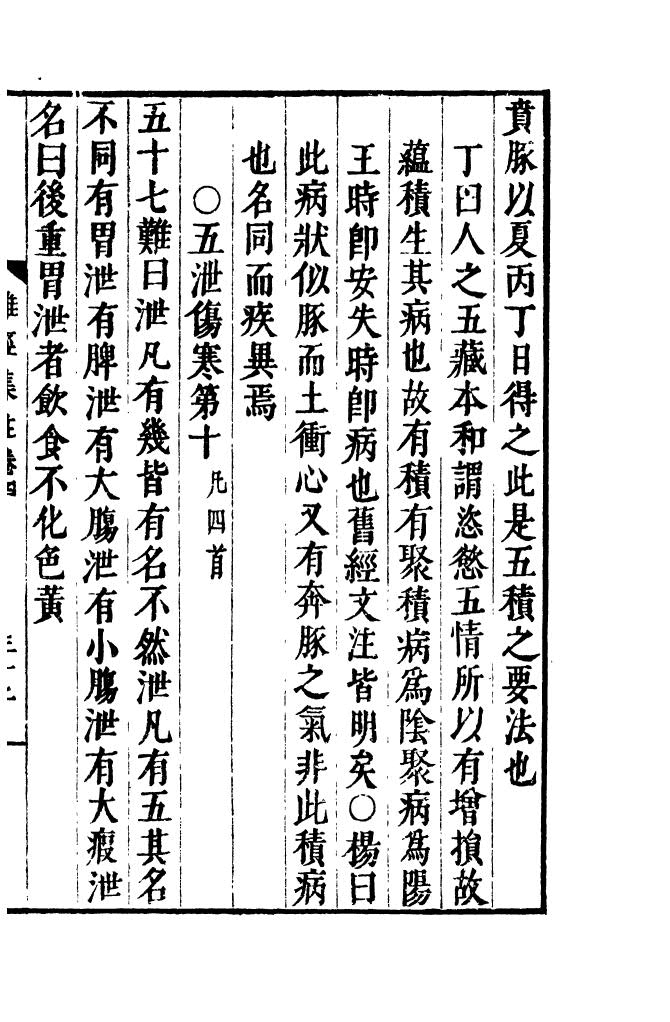 賁豚以夏丙丁日得之此是五積之要法也
丁曰人之五藏本和謂恣慾五情所以有增損故
蘊積生其病也故有積有聚積病爲陰聚病爲陽
王時卽安失時卽病也舊經文注皆明矣○楊曰
此病狀似豚而上衝心又有奔豚之氣非此積病
也名同而疾異焉
○五泄傷寒第十 凡四首
五十七難曰泄凡有幾皆有名不然泄凡有五其名
不同有胃泄有脾泄有大腸泄有小腸泄有大瘕泄
名曰後重胃泄者飲食不化色黃
難經集注卷四